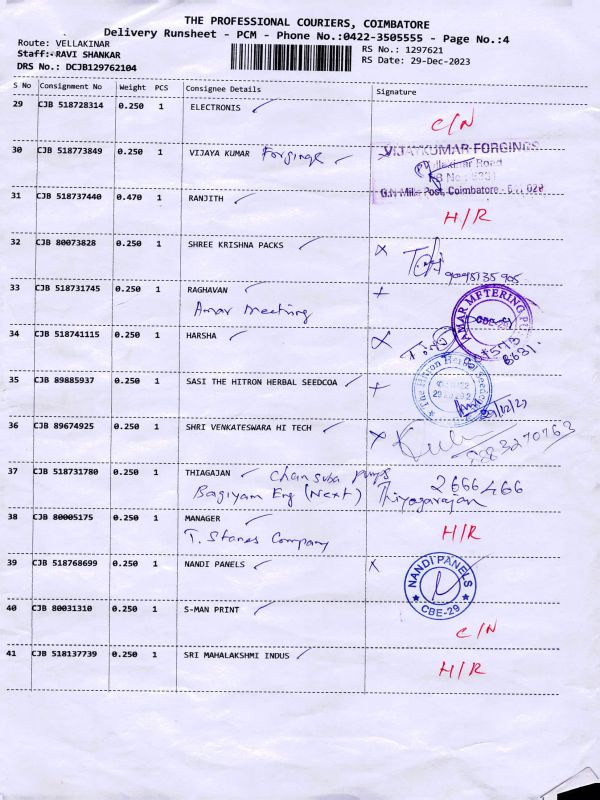 THE PROFESSIONAL COURIERS, COIMBATORE
Delivery Runsheet - PCM - Phone No.:0422-3505555 - Page No.:4
Route: VELLAKINAR
RS No.: 1297621
Staff:-RAVI SHANKAR
RS Date: 29-Dec-2023
DRS No.: DCJB129762104
S No Consignment No Weight PCS Consignee Details Signature
29 CJB 518728314 0.250 1 ELECTRONIS
C/N
30 CJB 518773849 0.250 1 VIJAYA KUMAR Forgings
VIJAYKUMAR FORGINGS
Vellakinar Road
G.N Mills Post, Coimbatore - 641 029
31 CJB 518737440 0.470 1 RANJITH
H/R
32 CJB 80073828 0.250 1 SHREE KRISHNA PACKS X
33 CJB 518731745 0.250 1 RAGHAVAN
Amar Meetring
AMAR METERING
CBE-29
34 CJB 518741115 0.250 1 HARSHA X
8631.
35 CJB 89885937 0.250 1 SASI THE HITRON HERBAL SEEDCOA
The Hitron Herbal Seedcoa
29/12/23
36 CJB 89674925 0.250 1 SHRI VENKATESWARA HI TECH X
9883270763
37 CJB 518731780 0.250 1 THIAGAJAN Chansuba Pumps
Bagiyam Eng (Next) Thiyagarajan 2666466
38 CJB 80005175 0.250 1 MANAGER
T. Stanes Company
H/R
39 CJB 518768699 0.250 1 NANDI PANELS X
NANDI PANELS
CBE-29
40 CJB 80031310 0.250 1 S-MAN PRINT
C/N
41 CJB 518137739 0.250 1 SRI MAHALAKSHMI INDUS
H/R